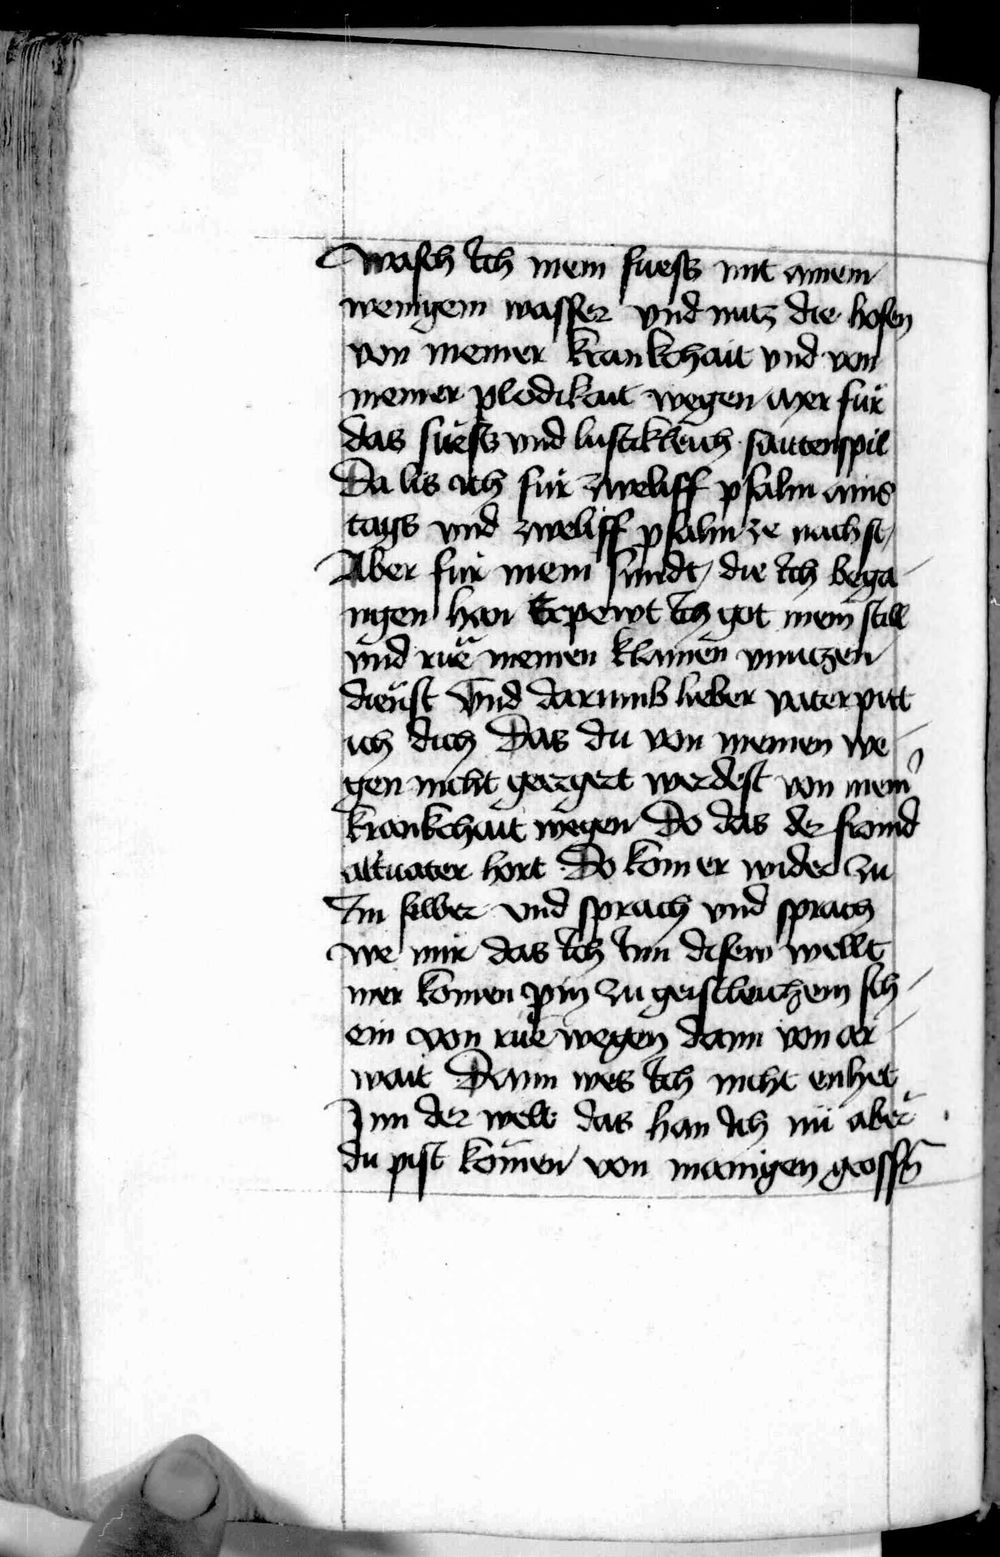 wasch Ich mein fuess mit ainem
wenigem wasser vnd nutz die hosen
von meiner krankchait vnd von
meiner plodikait wegen Aber für
das suess vnd lustikleich saittenspil
Da lis ich für zweliff psalm ains
tags vnd zweliff psalm ze nachst
Aber für mein sundt die Ich bega
ngen han Erpewt Ich got mein still
vnd rue meinen klainen vnnutzen
dienst Vnd darumb lieber vater pitt
ich dich Das du von meinen we
gen nicht geergert werdest von mein
krankchait wegen Do das der fromd
altuater hort Do kom er wider zu
Im selber vnd sprach vnd sprach
we mir das Ich Inn disem wellt
mer komen pin zu geistleichem sch
ein von rue wegen dann von ar
wait Dann wes Ich nicht enhet
Inn der welt das han Ich nu aber
du pist komen von manigen grossen